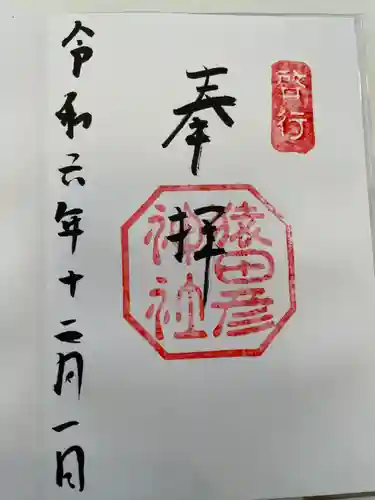 啓行
奉拝
猿田彦
神社
令和六年十二月一日